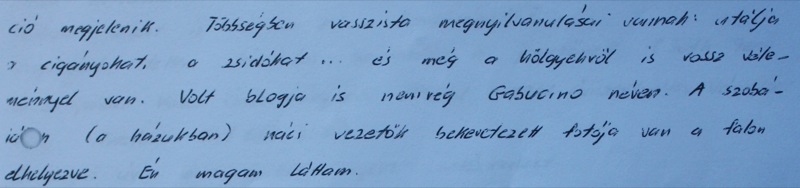 ció megjelenik. Többségben rasszista megnyilvanulásai vannak: utálja
a cigányokat, a zsidókat ... és még a hölgyekről is rossz véle-
ménnyel van. Volt blogja is nemrég Gabucino néven. A szobá-
ján (a házukban) náci vezetők bekeretezett fotója van a falon
elhelyezve. Én magam láttam.